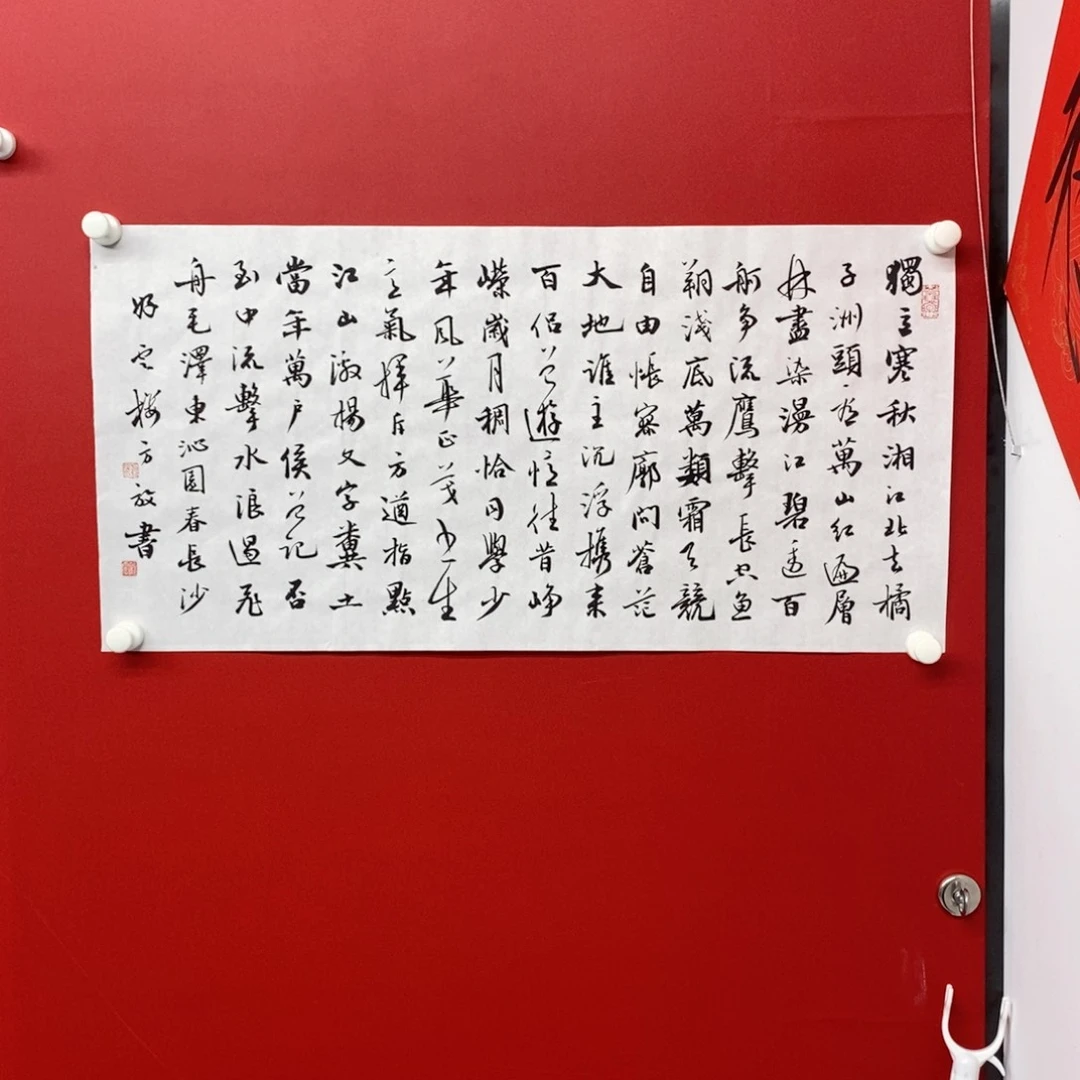 獨立寒秋湘江北去橘
子洲頭看萬山紅遍層
林盡染漫江碧透百
舸争流鷹擊長空魚
翔淺底萬類霜天競
自由悵寥廓問蒼茫
大地誰主沉浮携來
百侣曾遊憶往昔崢
嶸歲月稠恰同學少
年風華正茂书生
意氣揮斥方遒指點
江山激揚文字糞土
當年萬户侯曾記否
到中流擊水浪遏飛
舟毛澤東沁園春長沙
好雲樓方放書